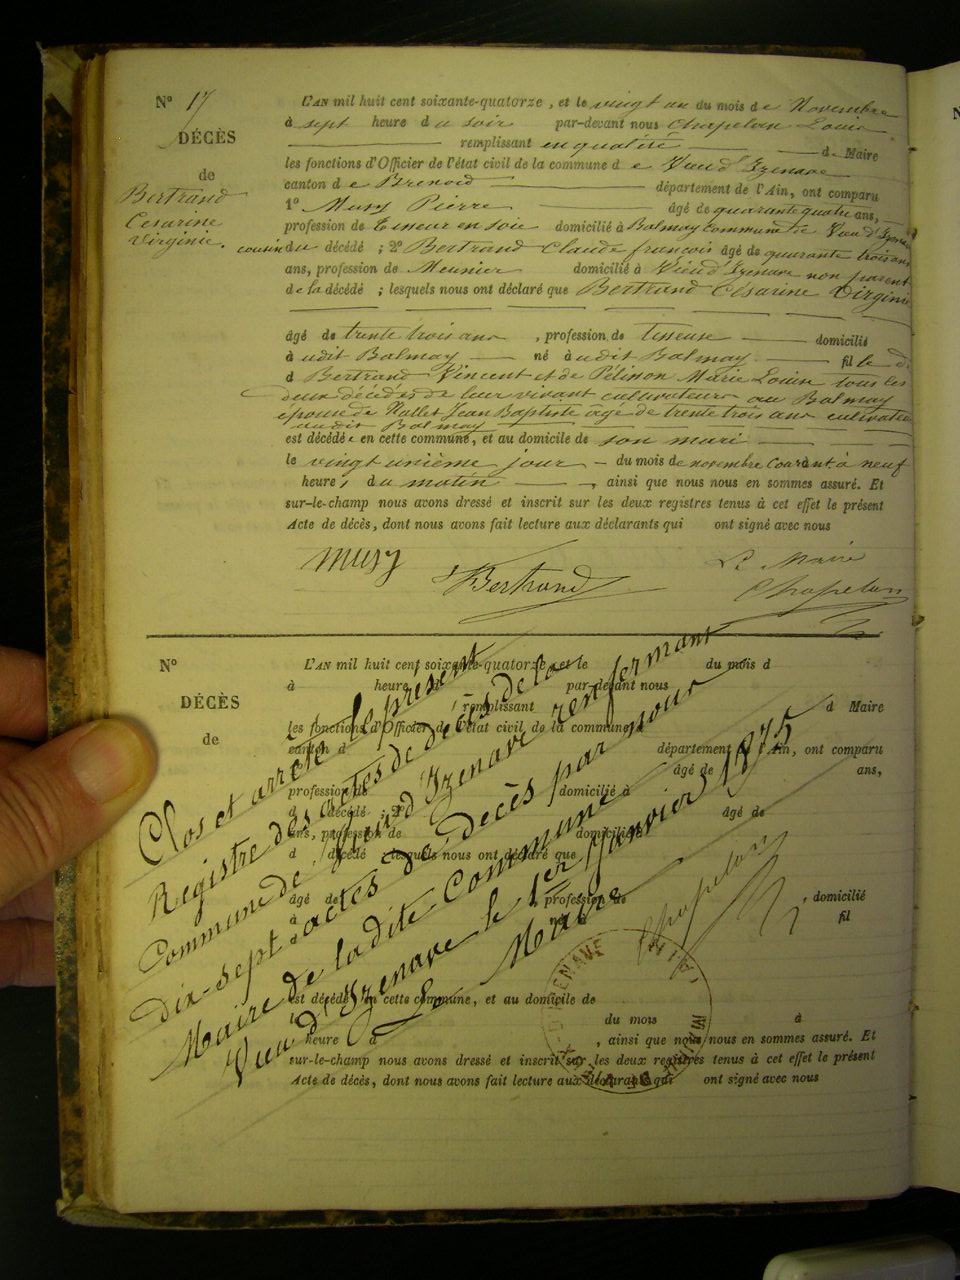 N° 17
DÉCÈS
de
Bertrand
Cesarine
Virginie.
L'AN mil huit cent soixante-quatorze, et le vingt un du mois de Novembre
à sept heure du soir par-devant nous Chapelan Louis
remplissant en qualité de Maire
les fonctions d'Officier de l'état civil de la commune de Vieu d'Izenave
canton de Brenod département de l'Ain, ont comparu
1° Musy Pierre âgé de quarante quatre ans,
profession de Tisseur en soie domicilié à Balmay commune de Vieu d'Izenave
cousin du décédé ; 2° Bertrand Claude françois âgé de quarante trois ans
ans, profession de Meunier domicilié à Vieu d'Izenave non parent
de la décédé ; lesquels nous ont déclaré que Bertrand Césarine Virginie
âgé de trente trois ans, profession de tisseuse domicilié
à udit Balmay né à udit Balmay fille de
d Bertrand Vincent et de Pélisson Marie Louise tous les
deux décédés de leur vivant cultivateurs au Balmay
épouse de Nallet Jean Baptiste agé de trente trois ans cultivateur
audit Balmay
est décédée en cette commune, et au domicile de son mari
le vingt unième jour du mois de novembre courant à neuf
heures du matin, ainsi que nous nous en sommes assuré. Et
sur-le-champ nous avons dressé et inscrit sur les deux registres tenus à cet effet le présent
Acte de décès, dont nous avons fait lecture aux déclarants qui ont signé avec nous
Musy
Bertrand
Le Maire
Chapelan
N°
DÉCÈS
de
L'AN mil huit cent soixante-quatorze, et le du mois d
à heure d par-devant nous
remplissant
d Maire
les fonctions d'Officier de l'état civil de la commune d
canton d département de l'Ain, ont comparu
âgé de ans,
profession de domicilié à
d décédé ; 2° âgé de
ans, profession de domicilié à
d décédé lesquels nous ont déclaré que
âgé de , profession de domicilié
à né à fil
est décédé en cette commune, et au domicile de
le du mois à
heure d , ainsi que nous nous en sommes assuré. Et
sur-le-champ nous avons dressé et inscrit sur les deux registres tenus à cet effet le présent
Acte de décès, dont nous avons fait lecture aux déclarants qui ont signé avec nous
Clos et arrêté le présent
Registre des actes de décès de la
Commune de Vieu d'Izenave renfermant
dix-sept actes de décès par nous
Maire de la dite Commune
Vieu d'Izenave le 1er Janvier 1875
Le Maire
Chapelan